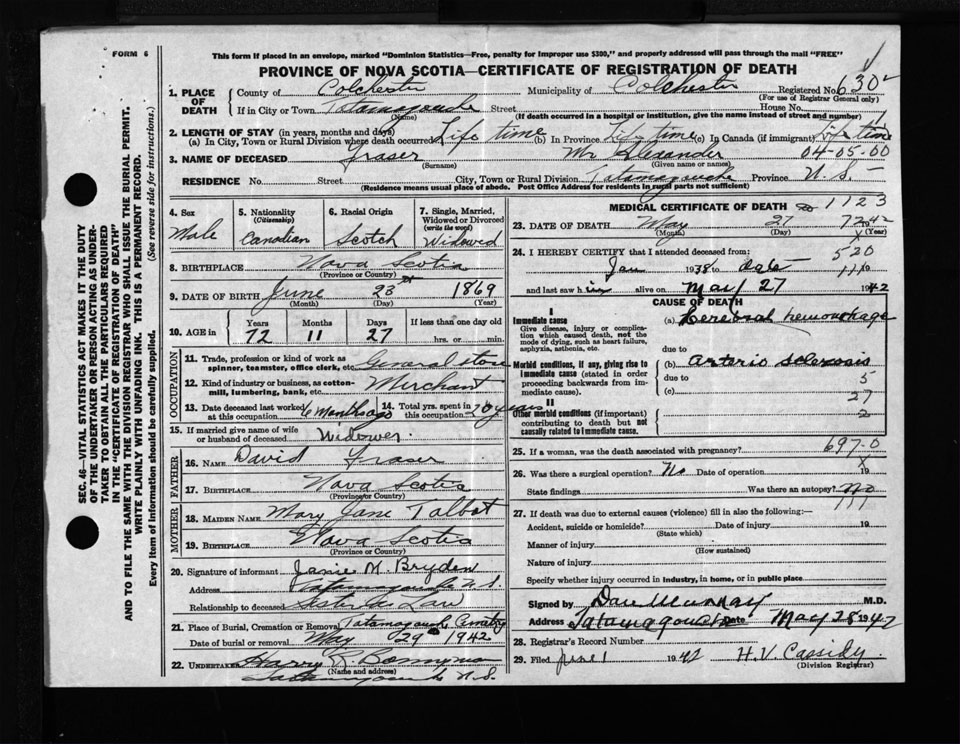 FORM 6
This form if placed in an envelope, marked "Dominion Statistics—Free, penalty for improper use $300," and properly addressed will pass through the mail "FREE"
PROVINCE OF NOVA SCOTIA—CERTIFICATE OF REGISTRATION OF DEATH
1. PLACE OF DEATH County of Colchester Municipality of Colchester Registered No. 630
(For use of Registrar General only)
If in City or Town Tatamagouche Street House No.
(Name) (If death occurred in a hospital or institution, give its name instead of street and number)
2. LENGTH OF STAY (in years, months and days)
(a) In City, Town or Rural Division where death occurred Life time (b) In Province Life time (c) In Canada (if immigrant) Life time
3. NAME OF DECEASED Fraser Mr Alexander 04-05-00
(Surname) (Given name or names)
RESIDENCE No. Street City, Town or Rural Division Tatamagouche Province N.S.
(Residence means usual place of abode. Post Office Address for residents in rural parts not sufficient)
SEC. 46—VITAL STATISTICS ACT MAKES IT THE DUTY
OF THE UNDERTAKER OR PERSON ACTING AS UNDER-
TAKER TO OBTAIN ALL THE PARTICULARS REQUIRED
IN THE "CERTIFICATE OF REGISTRATION OF DEATH"
AND TO FILE THE SAME WITH THE DIVISION REGISTRAR WHO SHALL ISSUE THE BURIAL PERMIT.
WRITE PLAINLY WITH UNFADING INK. THIS IS A PERMANENT RECORD.
Every item of information should be carefully supplied. (See reverse side for instructions.)
4. Sex Male
5. Nationality (Citizenship) Canadian
6. Racial Origin Scotch
7. Single, Married, Widowed or Divorced (write the word) Widowed
8. BIRTHPLACE Nova Scotia
(Province or Country)
9. DATE OF BIRTH June 23 1869
(Month) (Day) (Year)
10. AGE in Years Months Days If less than one day old
72 11 27 hrs. or min.
OCCUPATION
11. Trade, profession or kind of work as spinner, teamster, office clerk, etc. General store
12. Kind of industry or business, as cotton-mill, lumbering, bank, etc. Merchant
13. Date deceased last worked at this occupation 6 months ago 14. Total yrs. spent in this occupation 20 years
15. If married give name of wife or husband of deceased Widower
FATHER
16. NAME David Fraser
17. BIRTHPLACE Nova Scotia
(Province or Country)
MOTHER
18. MAIDEN NAME Mary Jane Talbot
19. BIRTHPLACE Nova Scotia
(Province or Country)
20. Signature of informant Janie M. Bryden
Address Tatamagouche N.S.
Relationship to deceased Sister in Law
21. Place of Burial, Cremation or Removal Tatamagouche Cemetry
Date of burial or removal May 29th 1942
22. UNDERTAKER Harry
(Name and address)
Tatamagouche N.S.
MEDICAL CERTIFICATE OF DEATH 1123
23. DATE OF DEATH May 27 1942
(Month) (Day) (Year)
24. I HEREBY CERTIFY that I attended deceased from: 520
Jan 1938 to date 19
and last saw him alive on May 27 1942
CAUSE OF DEATH
I
Immediate cause (a) Cerebral hemorrhage
Give disease, injury or complication which caused death, not the mode of dying, such as heart failure, asphyxia, asthenia, etc.
due to
Morbid conditions, if any, giving rise to immediate cause (stated in order proceeding backwards from immediate). (b) Arterio sclerosis
due to 5
(c) 27
II
Other morbid conditions (if important) contributing to death but not causally related to immediate cause. 2
25. If a woman, was the death associated with pregnancy? 697-0
26. Was there a surgical operation? No Date of operation 19
State findings Was there an autopsy? No
27. If death was due to external causes (violence) fill in also the following:—
Accident, suicide or homicide? Date of injury 19
(State which)
Manner of injury
(How sustained)
Nature of injury
Specify whether injury occurred in industry, in home, or in public place
Signed by Dan Murray M.D.
Address Tatamagouche Date May 28 1942
28. Registrar's Record Number
29. Filed June 1 1942 H.V. Cassidy
(Division Registrar)